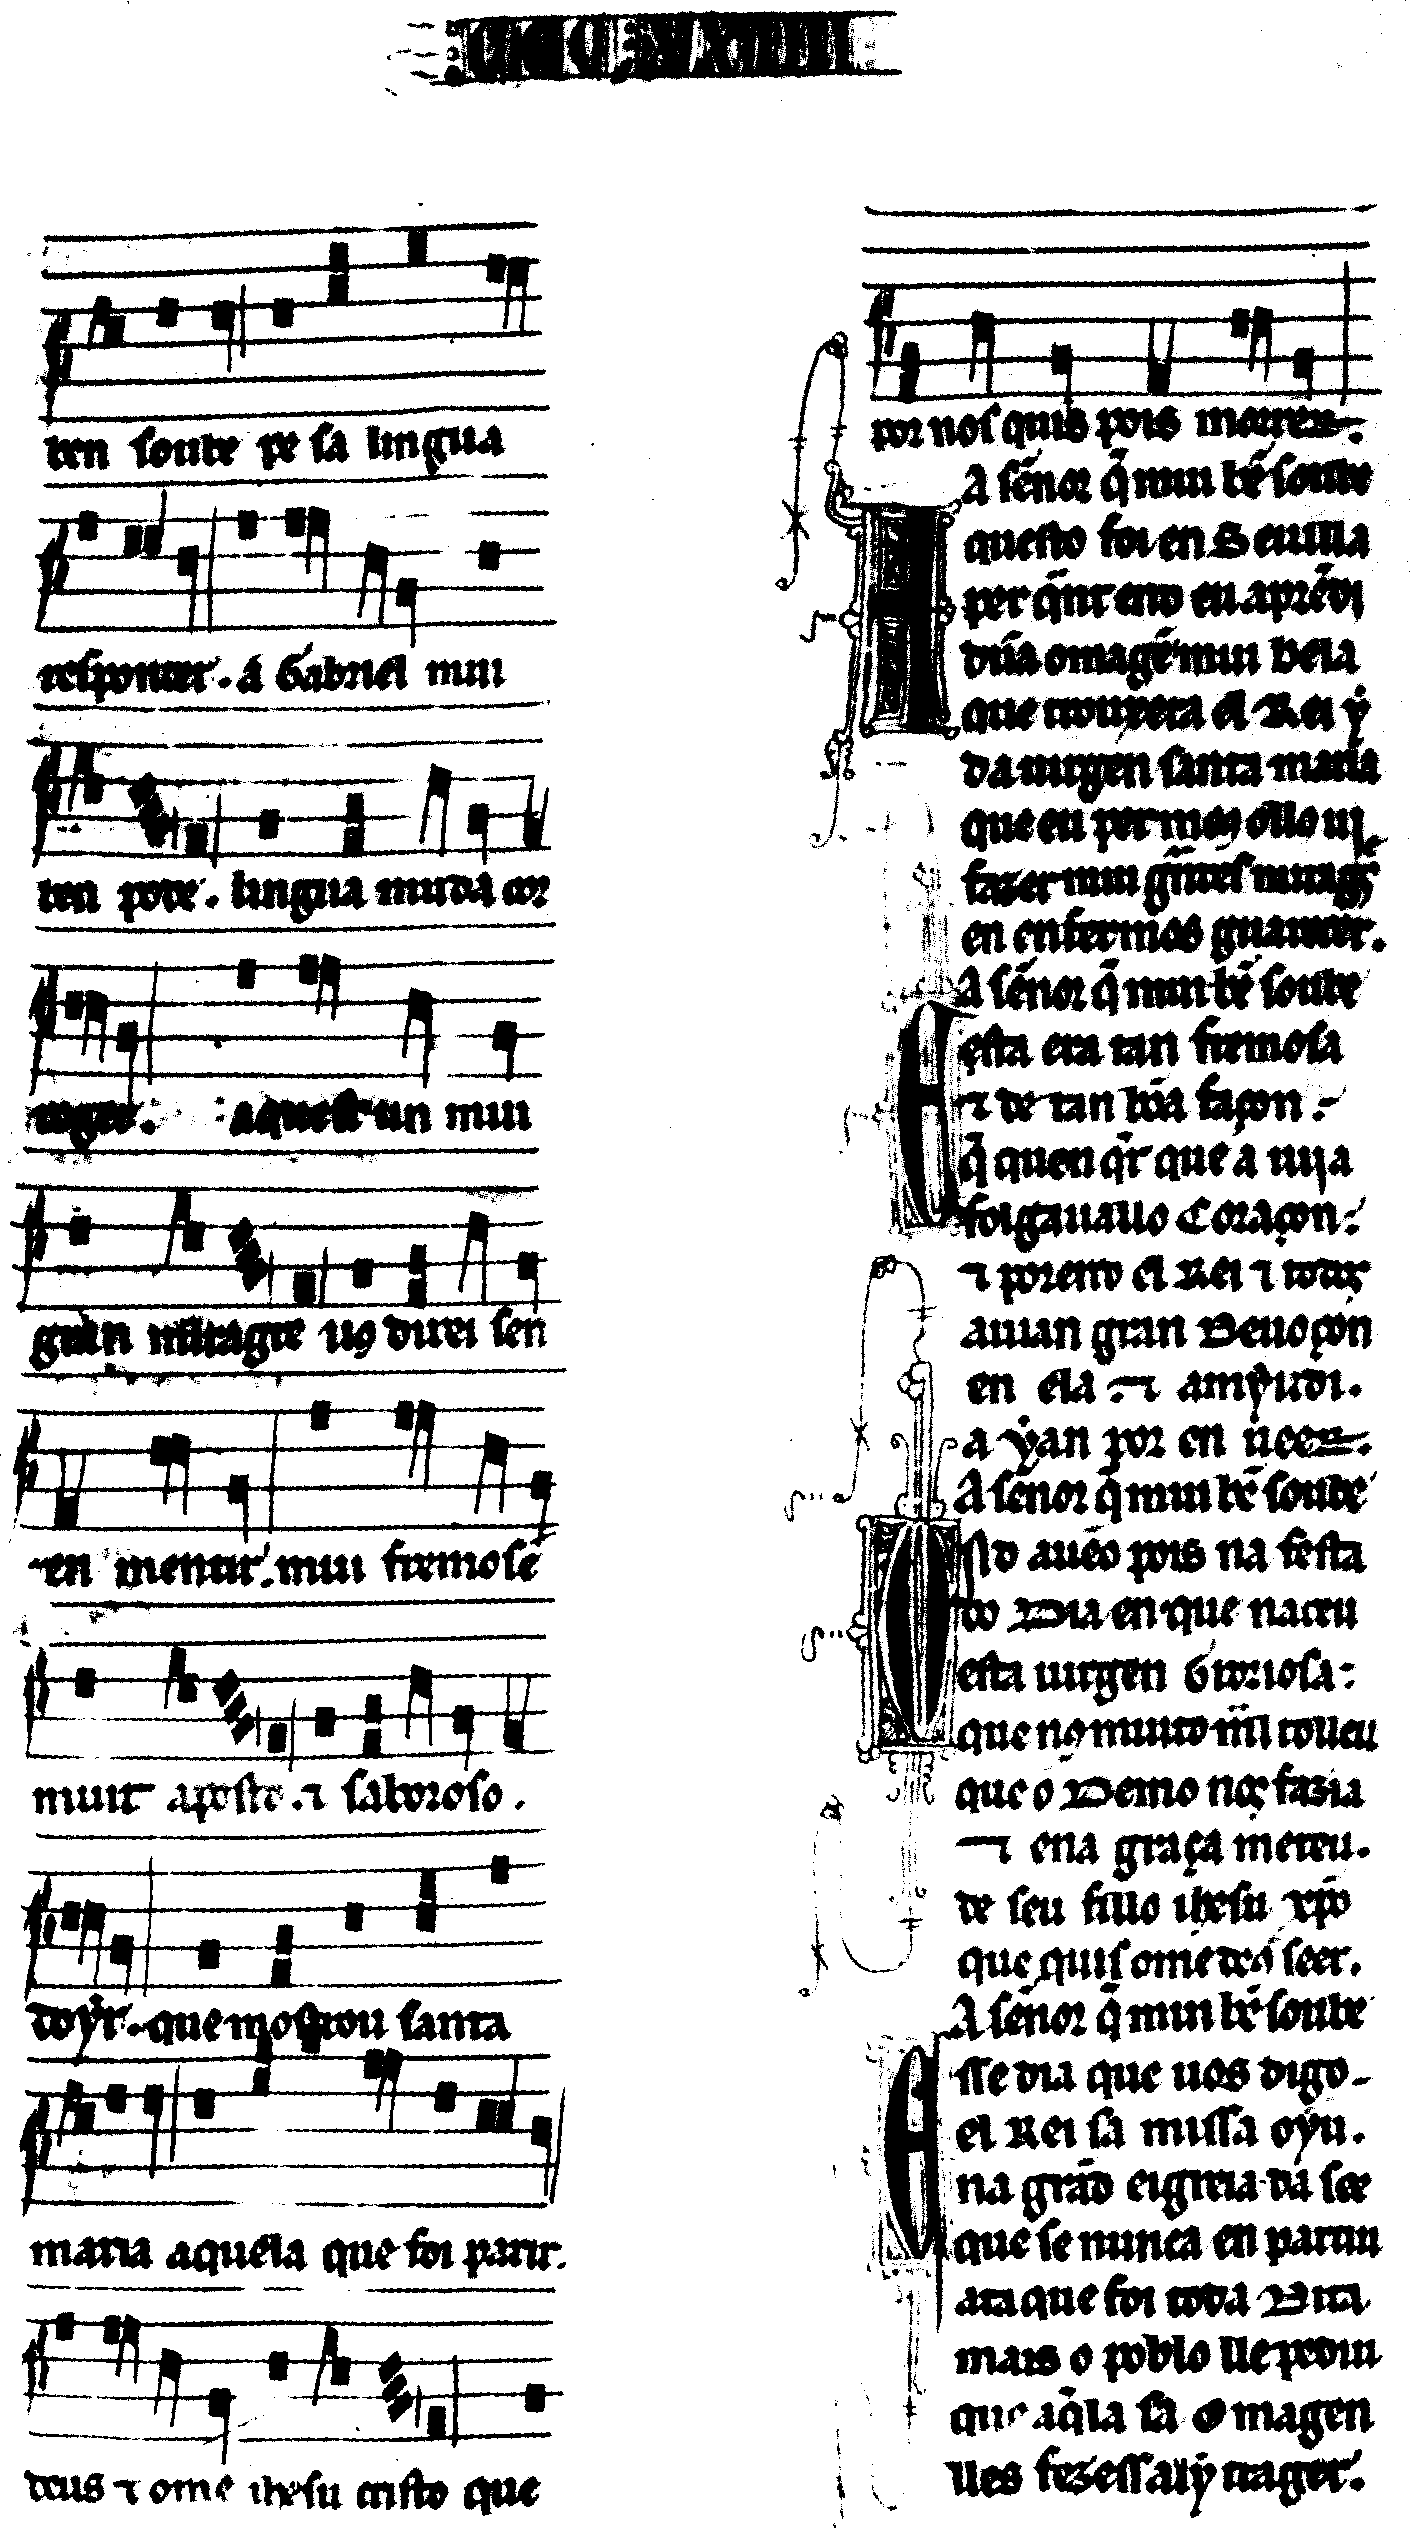 ben soube pe sa lingua
responder. á Gabriel mui
ben pode. lingua muda cor
reger. aquest un mui
gran miragre uꝯ direi sen
en mentir. mui fremos é
muit aposto. ⁊ saboroso.
doỹr. que mostrou santa
maria aquela que foi parir.
deus ⁊ ome ihesu cristo que
por nos quis pois morrer.
A sẽnor q̃ mui bẽ soube
questo foi en Seuilla
per q̃nt end eu aprẽdi
dũa omagẽ mui bela
que trouxera el Rei ý
da uirgen santa maria
que eu per meꝯ ollo ui
fazer mui
en enfermos guarecer.
A sẽnor q̃ mui bẽ soube
Esta era tan fremosa
⁊ de tan bõa façon.
q̃ quen q̃r que a uija
folgauallo Coraçon.
⁊ porend el Rei ⁊ todꝯ
auian gran Deuoçon
en ela. ⁊ amẏudi.
a ýan por en ueer.
A sẽnor q̃ mui bẽ soube
Ond auẽo pois na festa
do Dia en que naceu
esta uirgen Groriosa:
que nꝯ muito mal tolleu
que o Demo nꝯ fazia
⁊ ena graça meteu.
de seu fillo ihesu xp̃o
que quis ome deꝯ seer.
A sẽnor q̃ mui bẽ soube
Esse dia que uos digo
el Rei sa missa oyu.
na grãd eigreia da see
que se nunca en partiu
ata que foi toda Dita
mais o poblo lle pediu
que aq̃la sa Omagen
lles fezess alý trager.